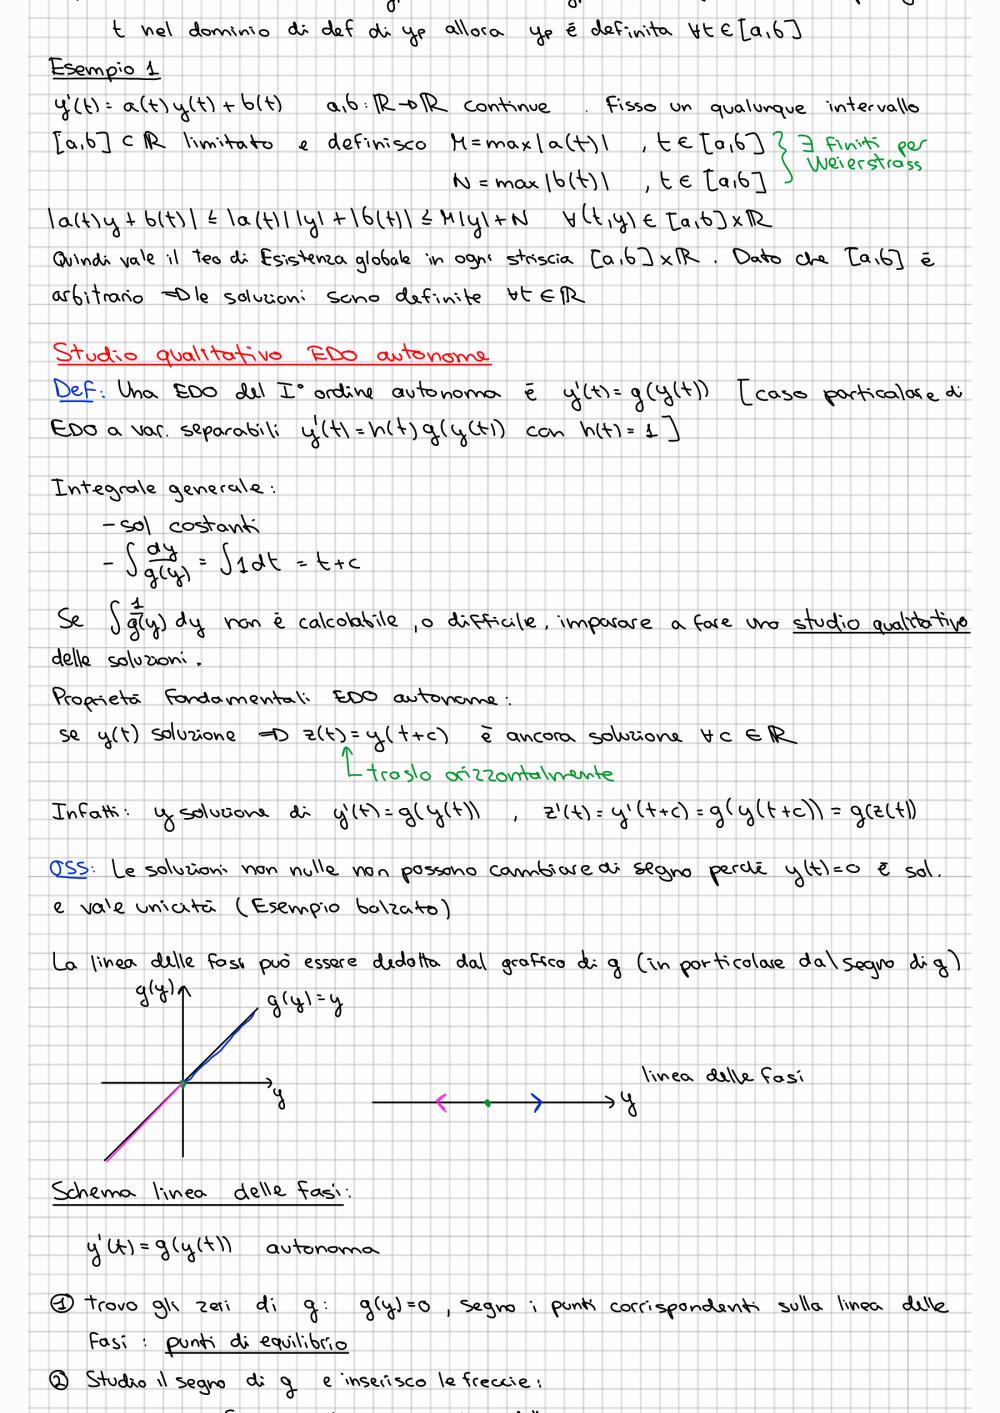 t nel dominio di def di yp allora yp è definita ∀t∈[a,b]
Esempio 1
y'(t) = a(t)y(t) + b(t) a,b : ℝ→ℝ continue . Fisso un qualunque intervallo
[a,b] ⊂ ℝ limitato e definisco M = max|a(t)| , t∈[a,b] } ∃ finiti per
Weierstrass
N = max|b(t)| , t∈[a,b]
|a(t)y + b(t)| ≤ |a(t)||y| + |b(t)| ≤ M|y| + N ∀(t,y) ∈ [a,b]×ℝ
Quindi vale il teo di Esistenza globale in ogni striscia [a,b]×ℝ. Dato che [a,b] è
arbitrario ⇒ le soluzioni sono definite ∀t∈ℝ
Studio qualitativo EDO autonome
Def: Una EDO del I° ordine autonoma è y'(t) = g(y(t)) [caso particolare di
EDO a var. separabili y'(t) = h(t)g(y(t)) con h(t) = 1]
Integrale generale:
- sol costanti
- ∫ dy/g(y) = ∫1dt = t+c
Se ∫ 1/g(y) dy non è calcolabile, o difficile, imparare a fare uno studio qualitativo
delle soluzioni.
Proprietà fondamentali EDO autonome:
se y(t) soluzione ⇒ z(t) = y(t+c) è ancora soluzione ∀c∈ℝ
traslo orizzontalmente
Infatti: y soluzione di y'(t) = g(y(t)) , z'(t) = y'(t+c) = g(y(t+c)) = g(z(t))
OSS: Le soluzioni non nulle non possono cambiare di segno perché y(t)=0 è sol.
e vale unicità (Esempio balzato)
La linea delle fasi può essere dedotta dal grafico di g (in particolare dal segno di g)
g(y)
g(y) = y
y
linea delle fasi
y
Schema linea delle fasi:
y'(t) = g(y(t)) autonoma
① trovo gli zeri di g: g(y)=0, segno i punti corrispondenti sulla linea delle
fasi : punti di equilibrio
② Studio il segno di g e inserisco le freccie: